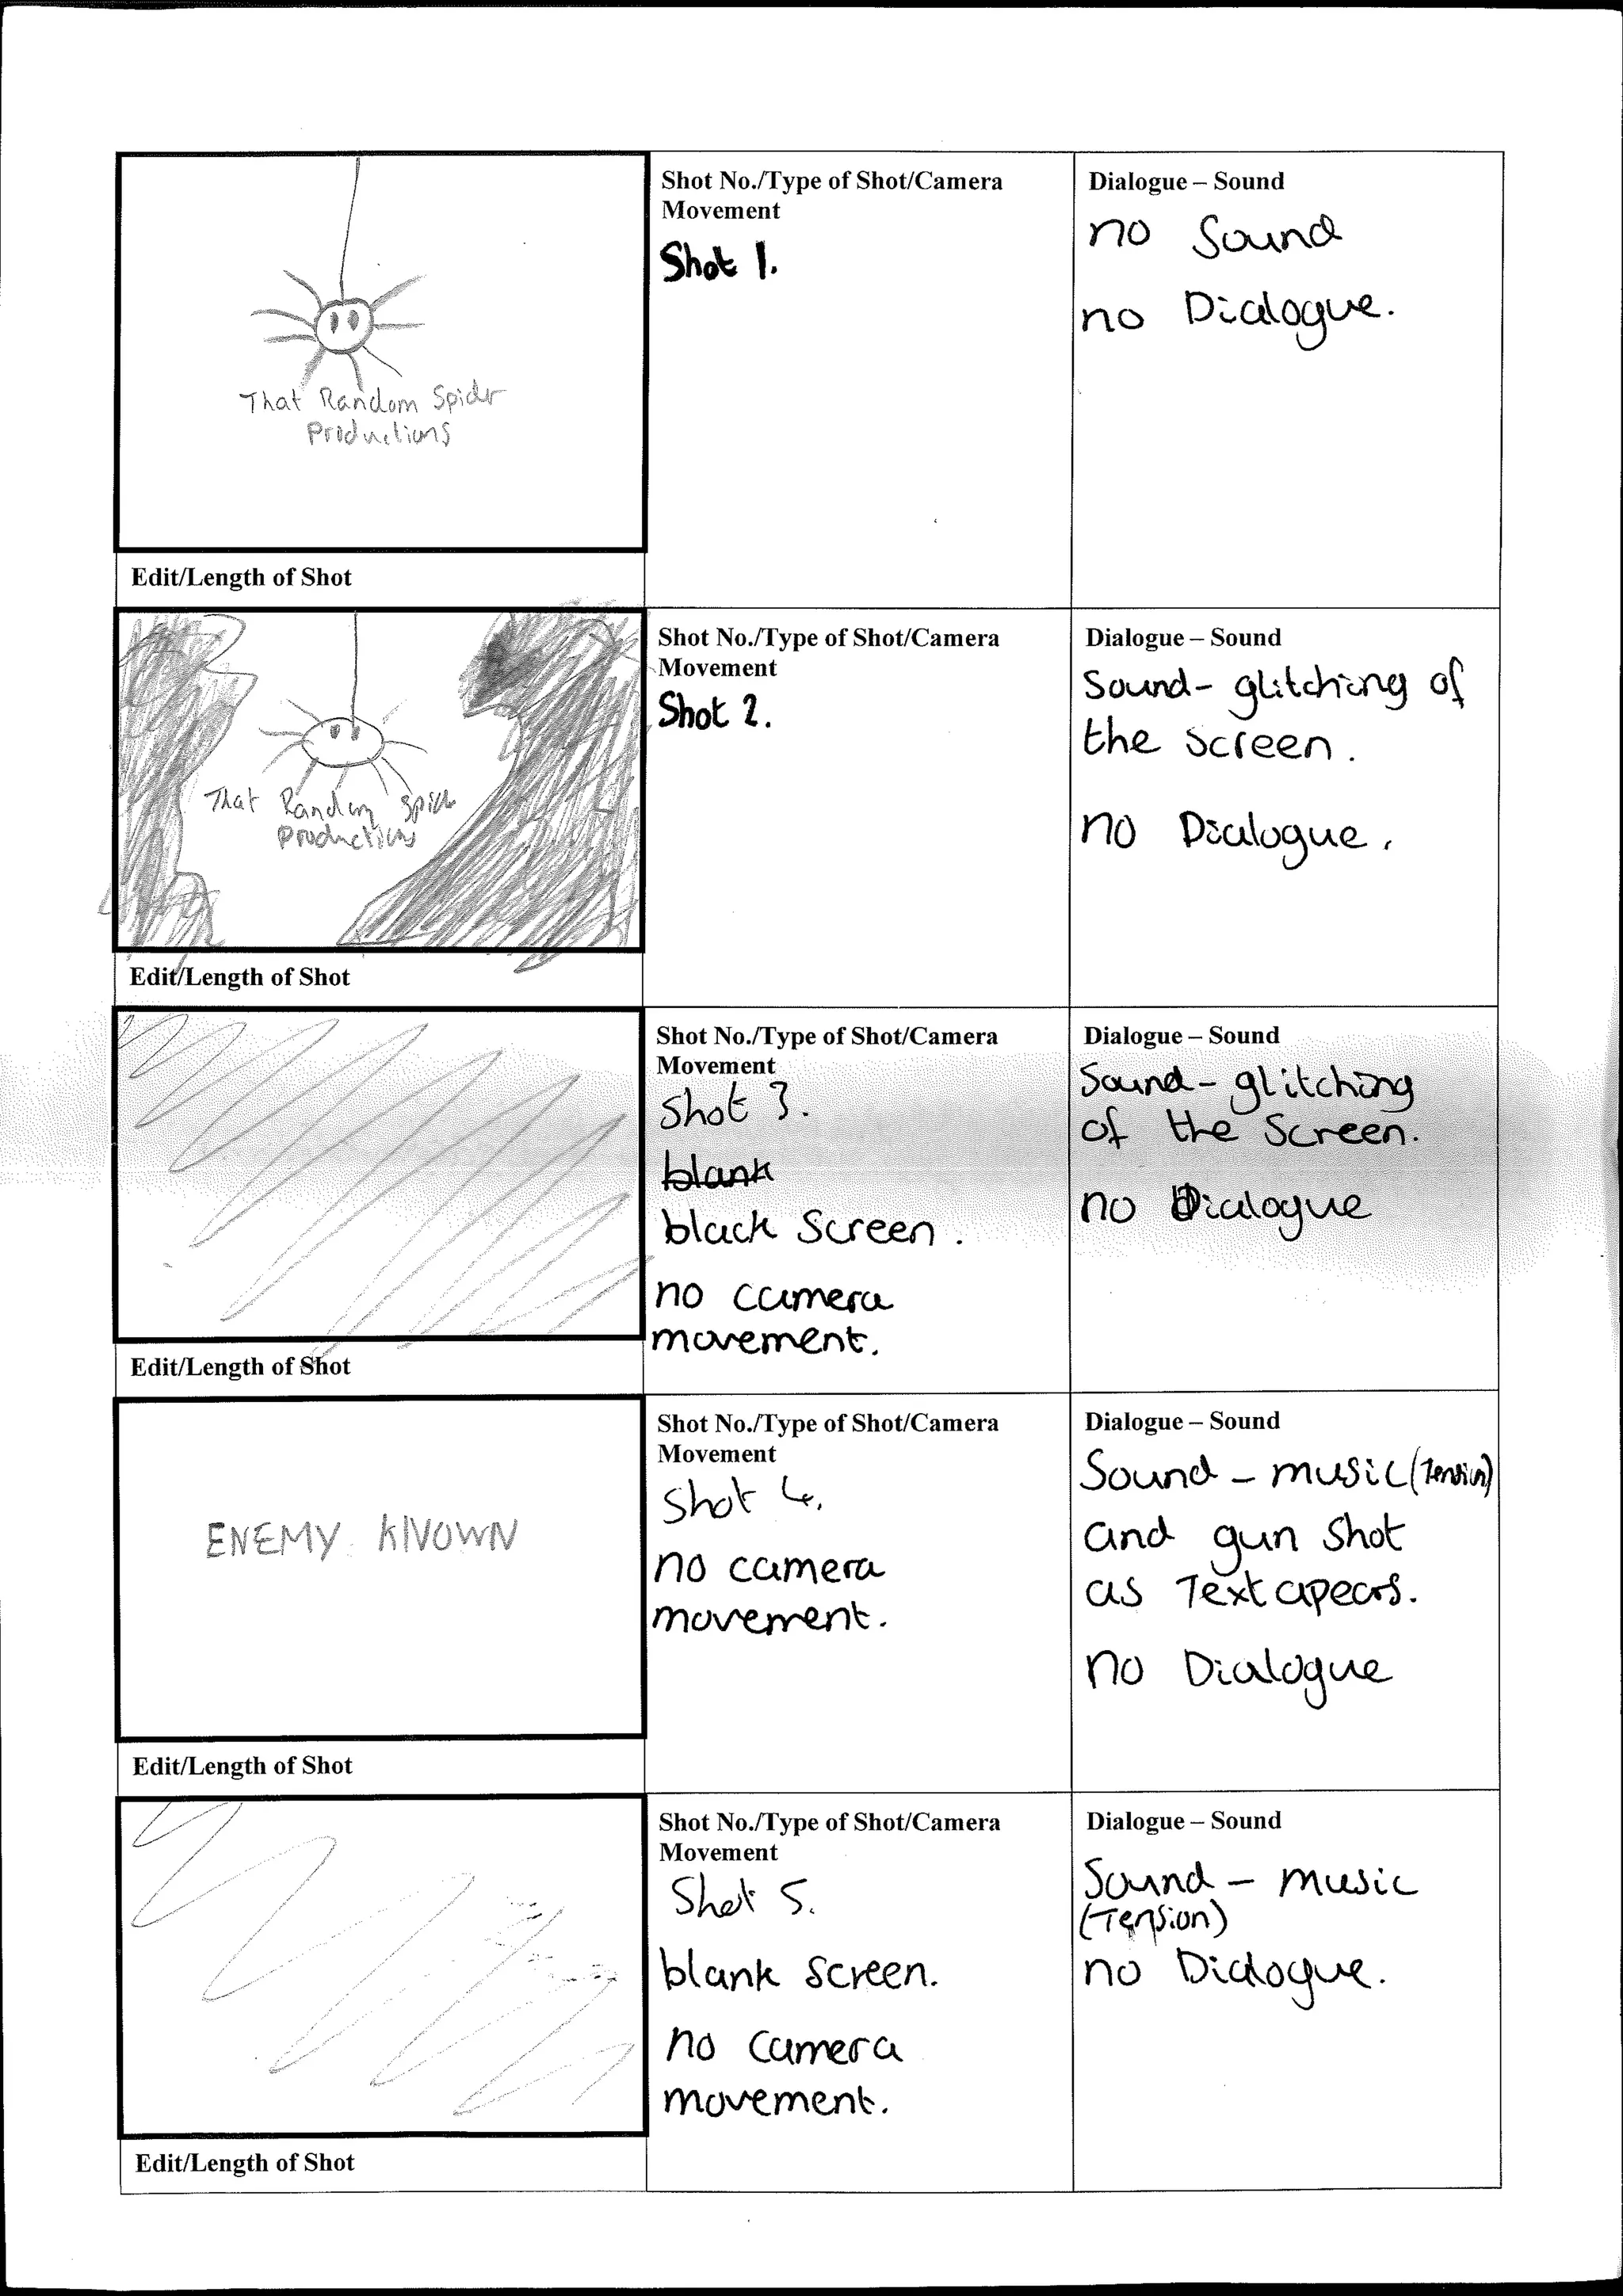 That Random Spider
Productions
Edit/Length of Shot
Shot No./Type of Shot/Camera
Movement
Shot 1.
Dialogue – Sound
no Sound
no Dialogue.
That Random Spider
Productions
Edit/Length of Shot
Shot No./Type of Shot/Camera
Movement
Shot 2.
Dialogue – Sound
Sound- glitching of
the screen.
no Dialogue.
Edit/Length of Shot
Shot No./Type of Shot/Camera
Movement
Shot 3.
blank
black Screen.
no camera
movement.
Dialogue – Sound
Sound- glitching
of the Screen.
no Dialogue
ENEMY KNOWN
Edit/Length of Shot
Shot No./Type of Shot/Camera
Movement
Shot 4.
no camera
movement.
Dialogue – Sound
Sound – music (Tension)
and gun shot
as Text apears.
no Dialogue
Edit/Length of Shot
Shot No./Type of Shot/Camera
Movement
Shot 5.
blank screen.
no camera
movement.
Dialogue – Sound
Sound – music
(Tension)
no Dialogue.